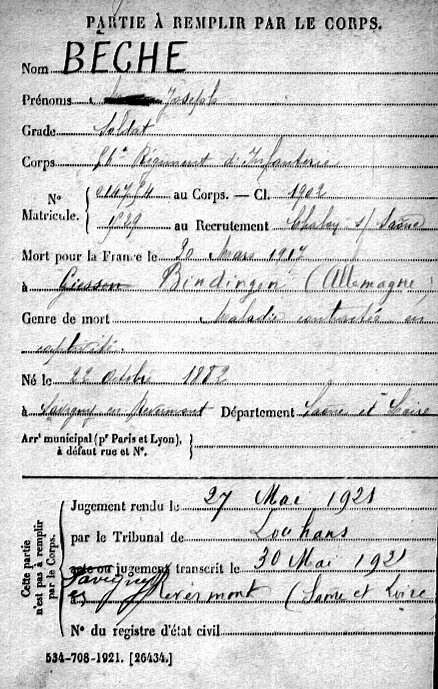 PARTIE À REMPLIR PAR LE CORPS.
Nom BÊCHE
Prénoms Joseph
Grade Soldat
Corps Régiment d'Infanterie
Nº au Corps. — Cl. 1902
Matricule. 1529 au Recrutement Chalon s/ Saône
Mort pour la France le 20 Mars 1917
à Giessen Bindingen (Allemagne)
Genre de mort Maladie contractée en
captivité.
Né le 22 Octobre 1882
à Savigny en Revermont Département Saône et Loire
Arrᵗ municipal (pʳ Paris et Lyon), à défaut rue et Nº.
Cette partie n'est pas à remplir par le Corps.
Jugement rendu le 27 Mai 1921
par le Tribunal de Louhans
acte ou jugement transcrit le 30 Mai 1921
à Savigny en Revermont (Saone et Loire
Nº du registre d'état civil
534-708-1921. [26434.]